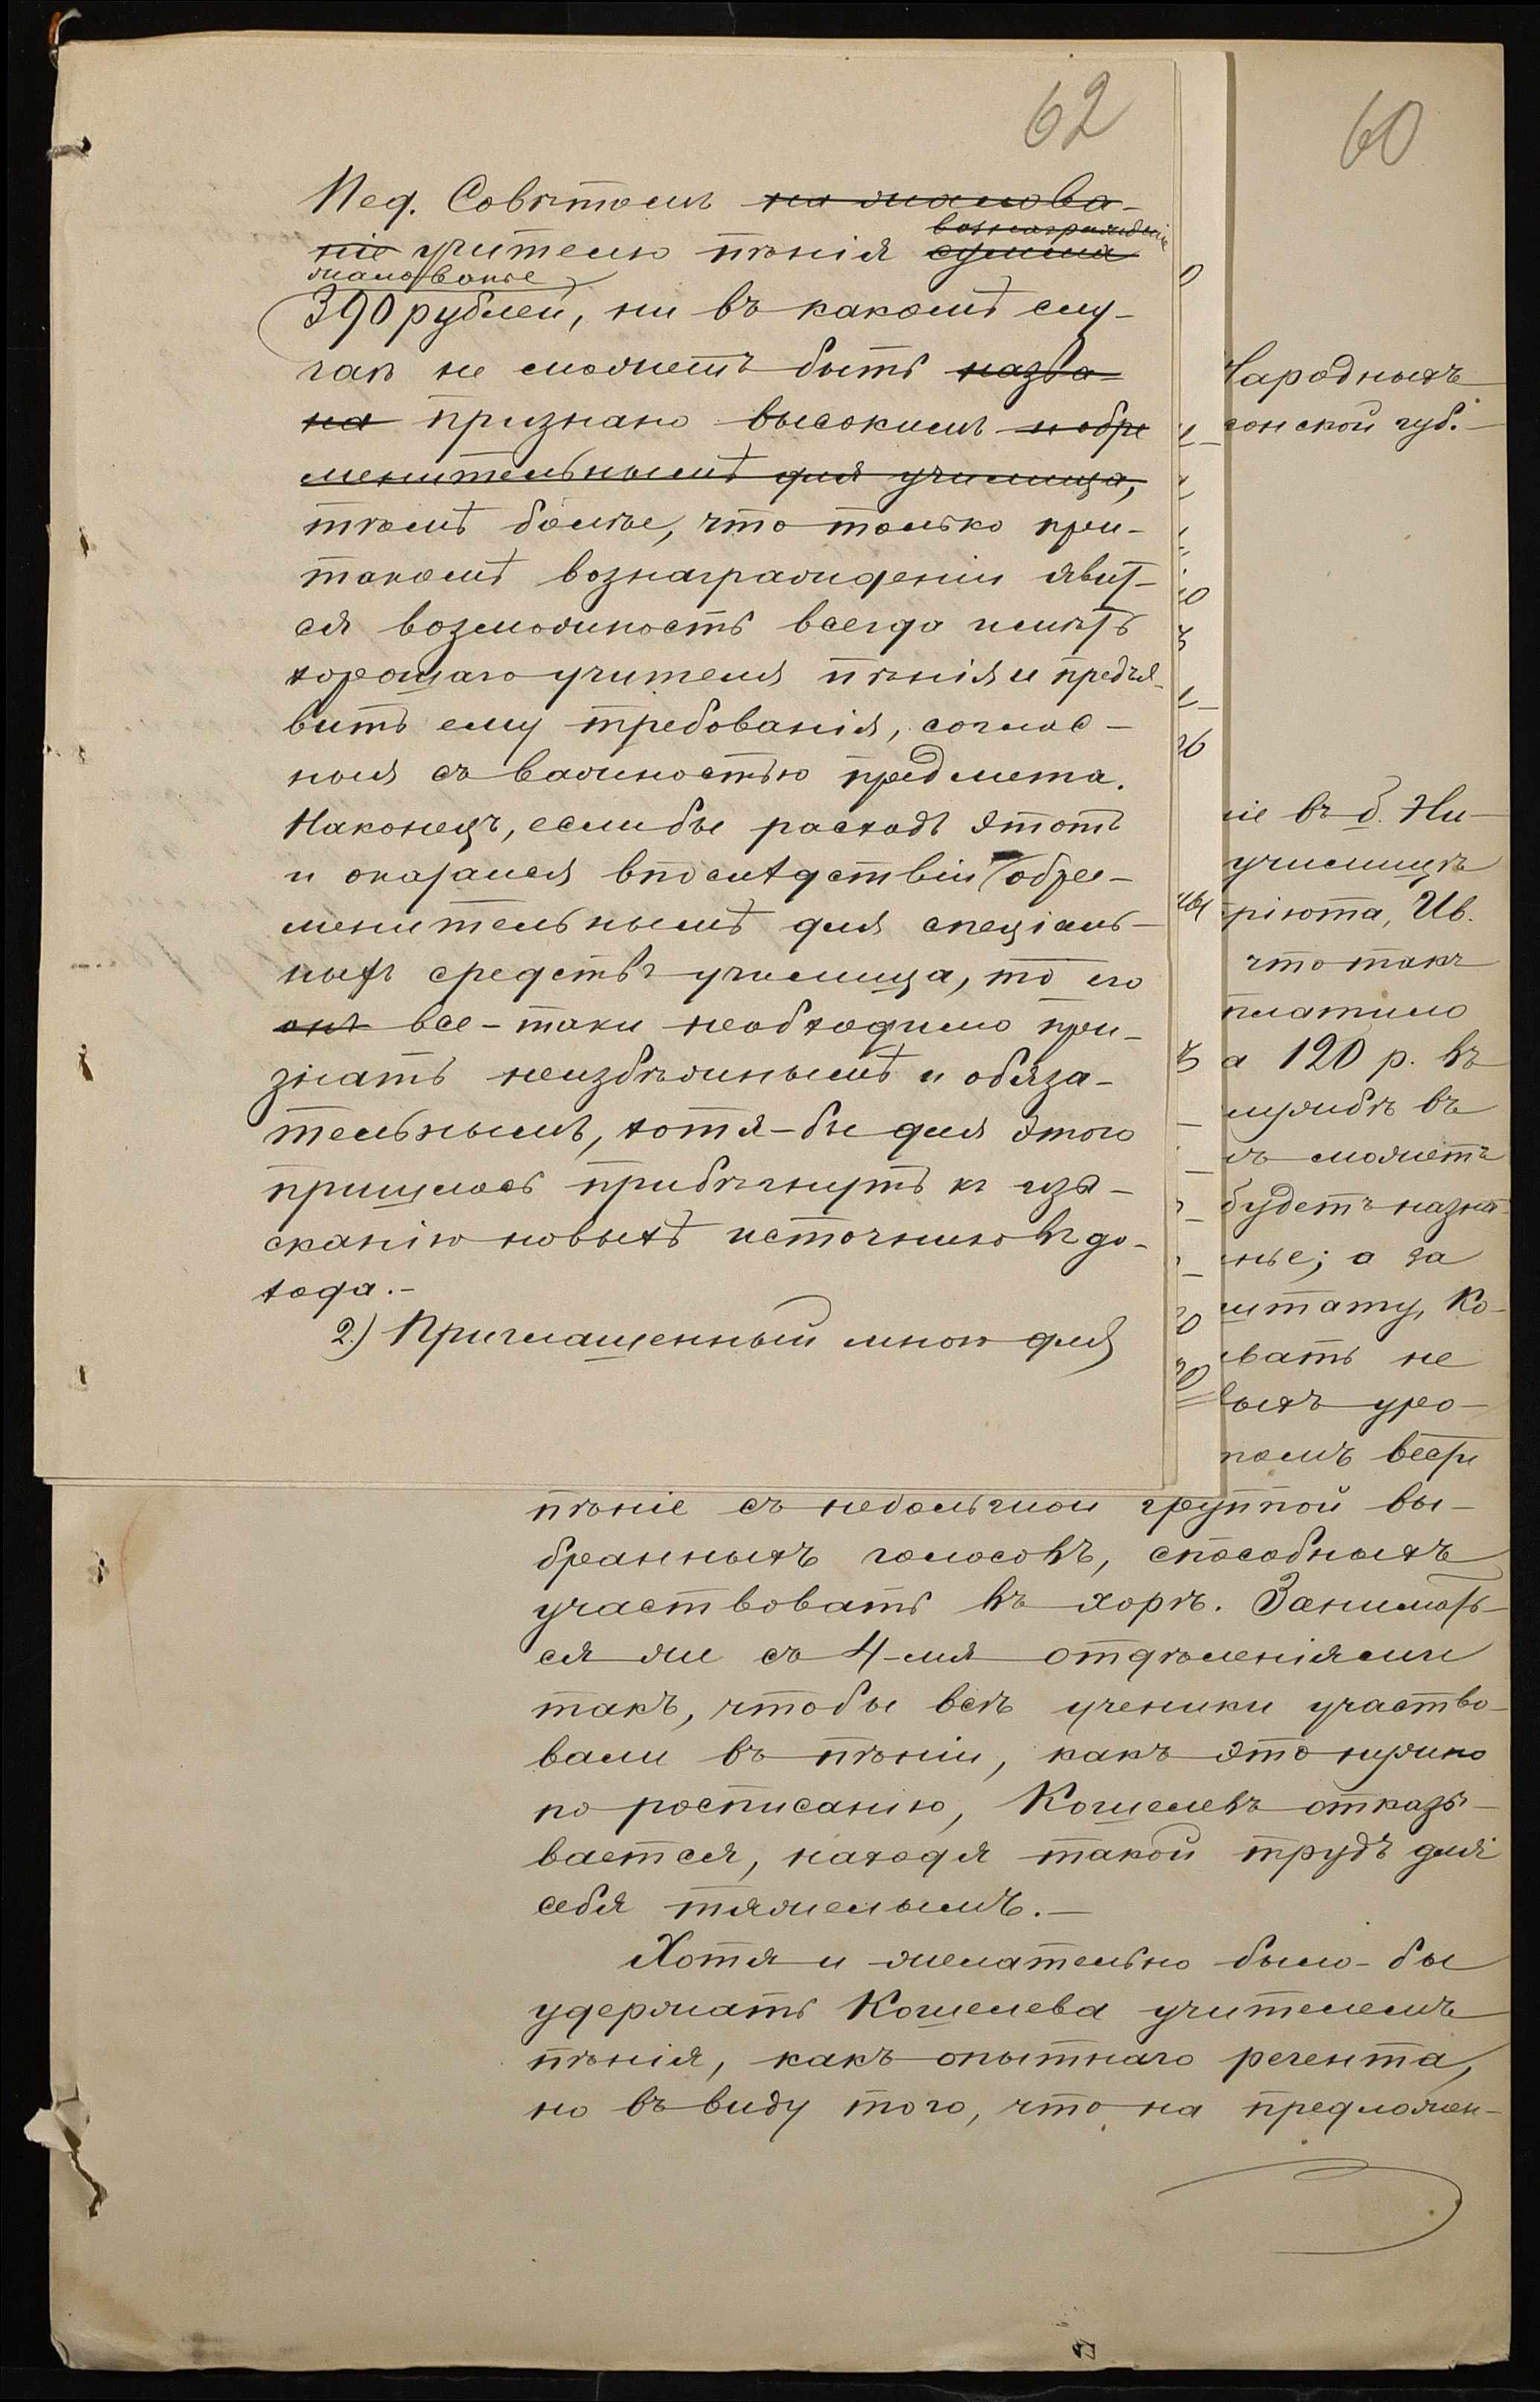 62
Пед. Совѣтомъ на жалова-
ніе учителю пѣнія сумма
вознагражденіе
жалованье
390 рублей, ни въ какомъ слу-
чаѣ не можетъ быть назва-
на признано высокимъ и обре
менительнымъ для училища,
тѣмъ болѣе, что только при-
такомъ вознагражденіи явит-
ся возможность всегда имѣть
хорошаго учителя пѣнія и предъя-
вить ему требованія, соглас-
ныя съ важностью предмета.
Наконецъ, если бы расходъ этотъ
и оказался впослѣдствіи обре-
менительнымъ для спеціаль-
ныхъ средствъ училища, то его
онъ все-таки необходимо при-
знать неизбѣжнымъ и обяза-
тельнымъ, хотя-бы для этого
пришлось прибѣгнуть къ изы-
сканію новыхъ источниковъ до-
хода.-
2.) Приглашенный мною для
60
Народныхъ
сонской губ.
ніе въ б. Ни-
училищѣ
пріюта, Ив.
что такъ
платило
а 120 р. въ
службѣ въ
съ можетъ
будетъ назна
нье; а за
штату, Ко-
вать не
выхъ уро-
помъ
пѣніе съ небольшой группой вы-
бранныхъ голосовъ, способныхъ
участвовать въ хорѣ. Занимать-
ся же съ 4-мя отдѣленіями
такъ, чтобы всѣ ученики участво-
вали въ пѣніи, какъ это нужно
по росписанію, Кошелевъ отказы-
вается, находя такой трудъ для
себя тяжелымъ.-
Хотя и желательно было-бы
удержать Кошелева учителемъ
пѣнія, какъ опытнаго регента,
но въ виду того, что на предложен-